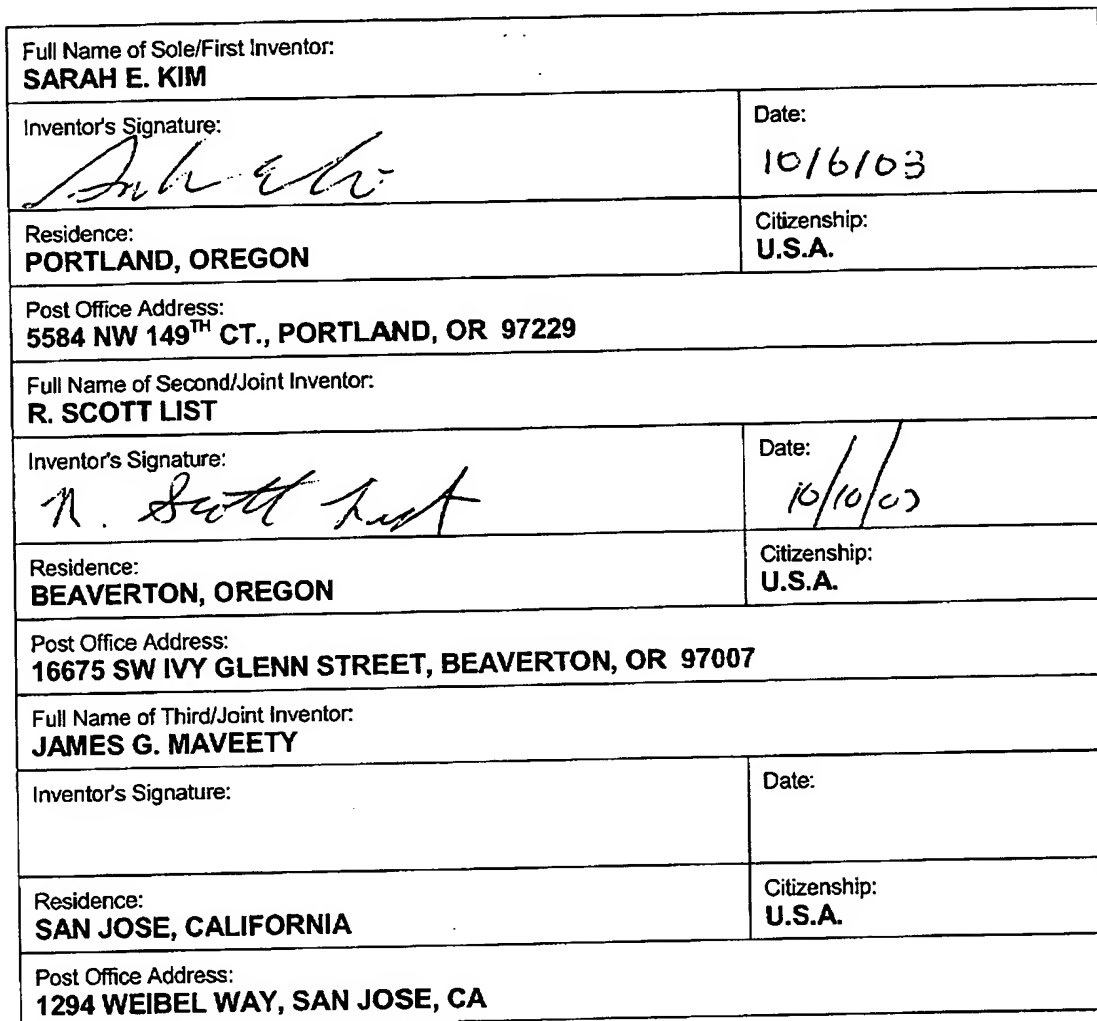 Full Name of Sole/First Inventor:
SARAH E. KIM
Inventor's Signature:
Date:
10/6/03
Residence:
PORTLAND, OREGON
Citizenship:
U.S.A.
Post Office Address:
5584 NW 149TH CT., PORTLAND, OR 97229
Full Name of Second/Joint Inventor:
R. SCOTT LIST
Inventor's Signature:
R. Scott List
Date:
10/10/03
Residence:
BEAVERTON, OREGON
Citizenship:
U.S.A.
Post Office Address:
16675 SW IVY GLENN STREET, BEAVERTON, OR 97007
Full Name of Third/Joint Inventor:
JAMES G. MAVEETY
Inventor's Signature:
Date:
Residence:
SAN JOSE, CALIFORNIA
Citizenship:
U.S.A.
Post Office Address:
1294 WEIBEL WAY, SAN JOSE, CA